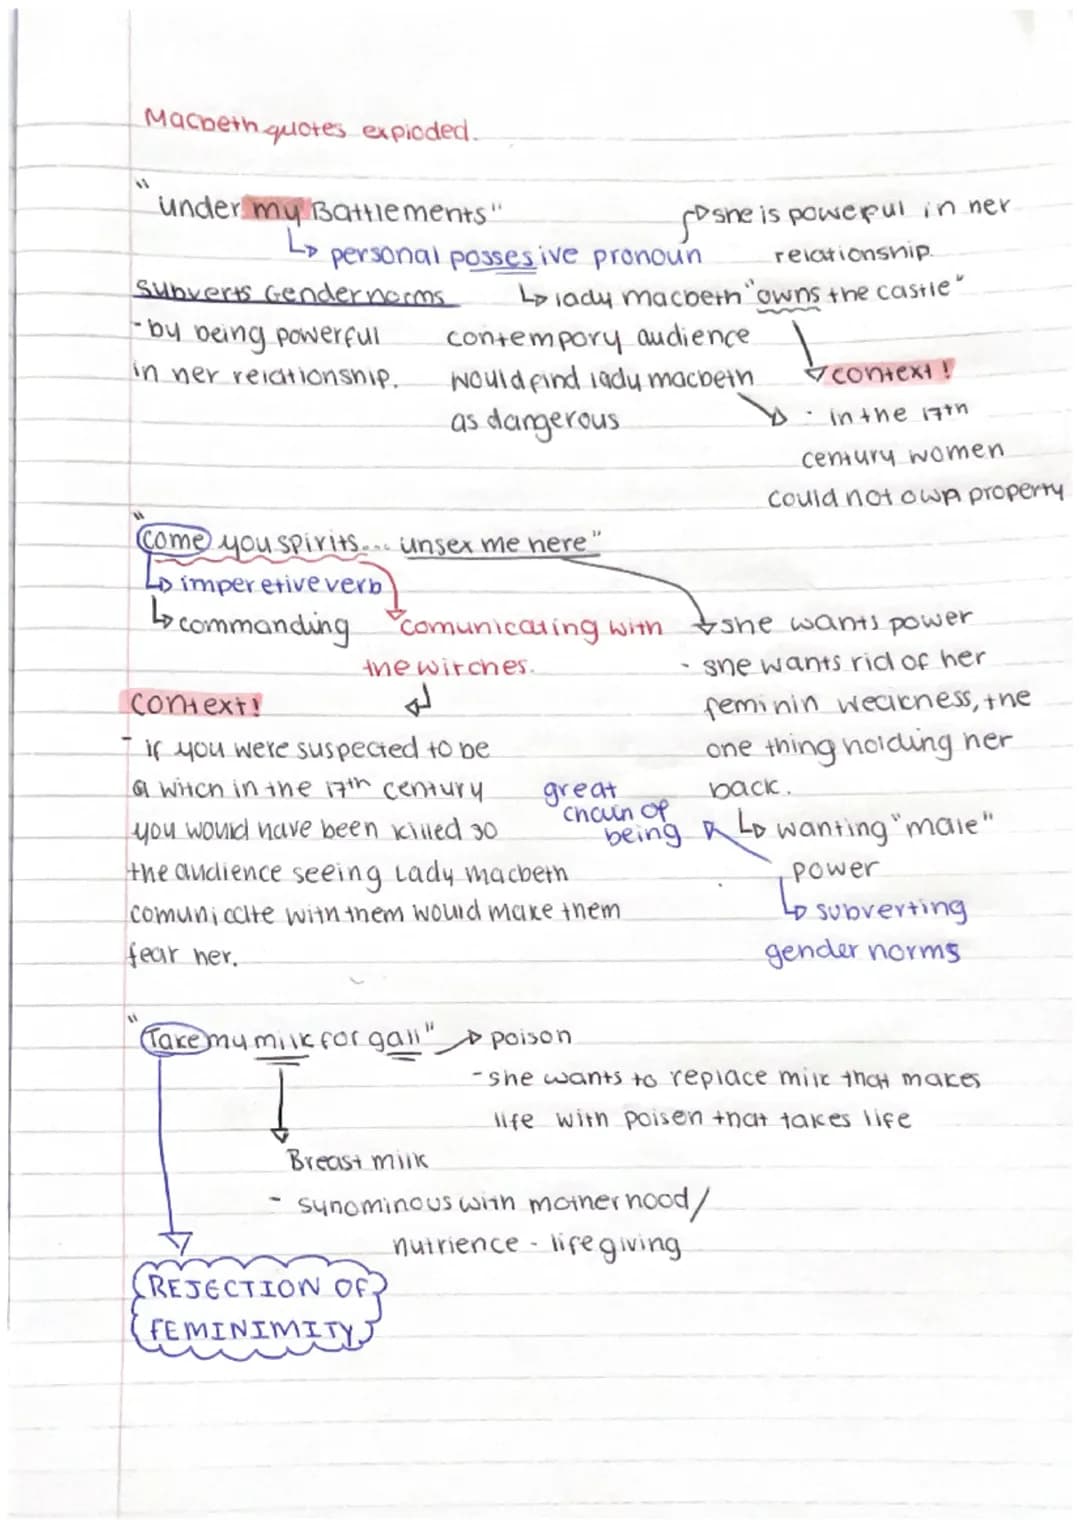 Macbeth quotes exploded.
"under my Battlements"
↳ personal possesive pronoun
↱ she is powerful in her
relationship.
Subverts Gender norms
- by being powerful
in her relationship.
↳ lady macbeth "owns the castle"
contempory audience
would find lady macbeth
as dangerous
context!
· in the 17th
century women
could not own property
"Come you spirits... unsex me here"
↳ imperetive verb
↳ commanding
comunicating with
the witches.
she wants power
- she wants rid of her
feminin weakness, the
one thing holding her
back.
↳ wanting "male"
power
↳ subverting
gender norms
great
chain of
being
Context!
- if you were suspected to be
a witch in the 17th century
you would have been killed so
the audience seeing Lady macbeth
comunicate with them would make them
fear her.
"Take my milk for gall" → poison
- she wants to replace milk that makes
life with poisen that takes life
Breast milk
- synominous with mother hood/
nutrience - life giving
REJECTION OF
FEMINIMITY